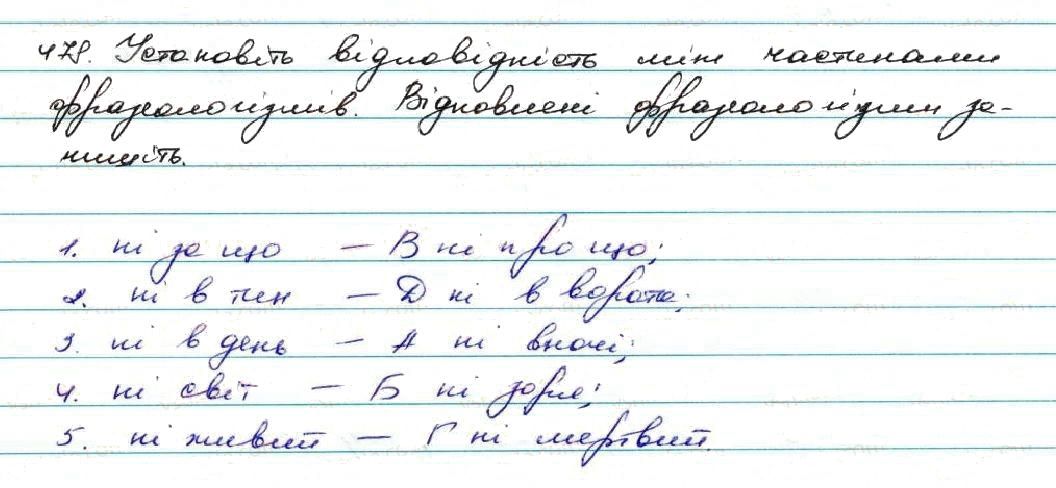 478. Установіть відповідність між частинами
фразеологізмів. Відновлені фразеологізми за-
пишіть.
1. ні за що – В ні про що;
2. ні в тин – Д ні в ворота;
3. ні в день – А ні вночі;
4. ні світ – Б ні зоря;
5. ні живий – Г ні мертвий.